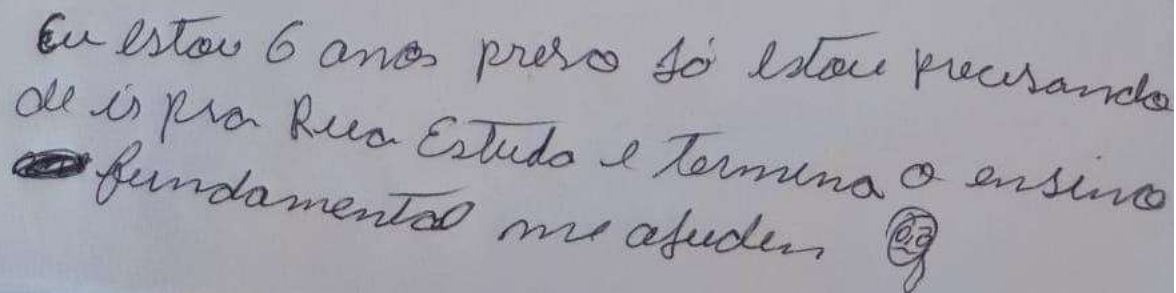 Eu estou 6 anos preso só estou precisando
de ir pra Rua Estuda e termina o ensino
fundamental me ajudem